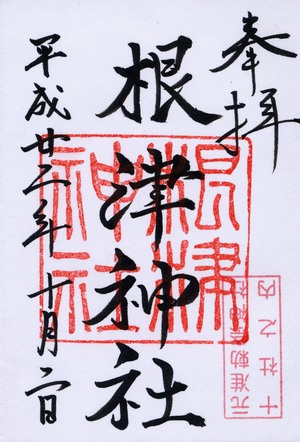 奉拝
根津神社
平成廿三年十月二日
根津神社
元准勅祭神社
十社之内